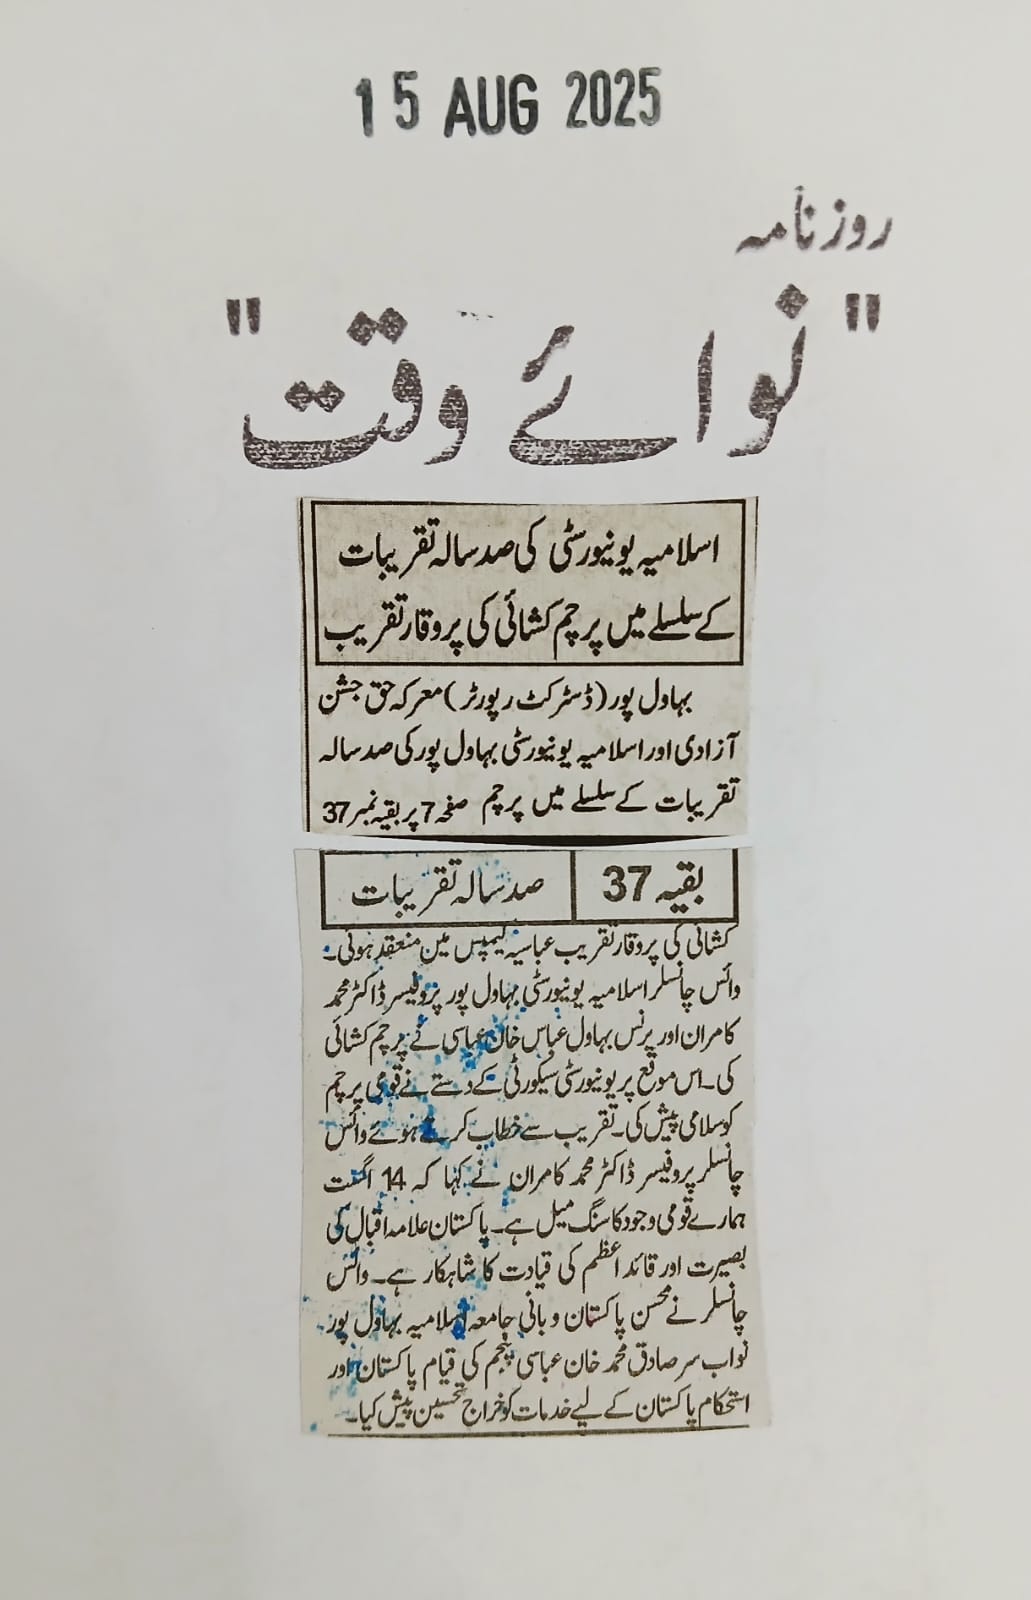 15 AUG 2025
روزنامہ
"نوائے وقت"
اسلامیہ یونیورسٹی کی صد سالہ تقریبات
کے سلسلے میں پرچم کشائی کی پروقار تقریب
بہاول پور (ڈسٹرکٹ رپورٹر) معرکہ حق جشن
آزادی اور اسلامیہ یونیورسٹی بہاول پور کی صد سالہ
تقریبات کے سلسلے میں پرچم صفحہ 7 پر بقیہ نمبر 37
بقیہ 37 صد سالہ تقریبات
کشائی کی پروقار تقریب عباسیہ کیمپس میں منعقد ہوئی۔
وائس چانسلر اسلامیہ یونیورسٹی بہاول پور پروفیسر ڈاکٹر محمد
کامران اور پرنس بہاول عباس خان عباسی نے پرچم کشائی
کی۔ اس موقع پر یونیورسٹی سیکورٹی کے دستے نے قومی پرچم
کو سلامی پیش کی۔ تقریب سے خطاب کرتے ہوئے وائس
چانسلر پروفیسر ڈاکٹر محمد کامران نے کہا کہ 14 اگست
ہمارے قومی وجود کا سنگ میل ہے۔ پاکستان علامہ اقبال کی
بصیرت اور قائد اعظم کی قیادت کا شاہکار ہے۔ وائس
چانسلر نے محسن پاکستان و بانی جامعہ اسلامیہ بہاول پور
نواب سر صادق محمد خان عباسی پنجم کی قیام پاکستان اور
استحکام پاکستان کے لیے خدمات کو خراج تحسین پیش کیا۔